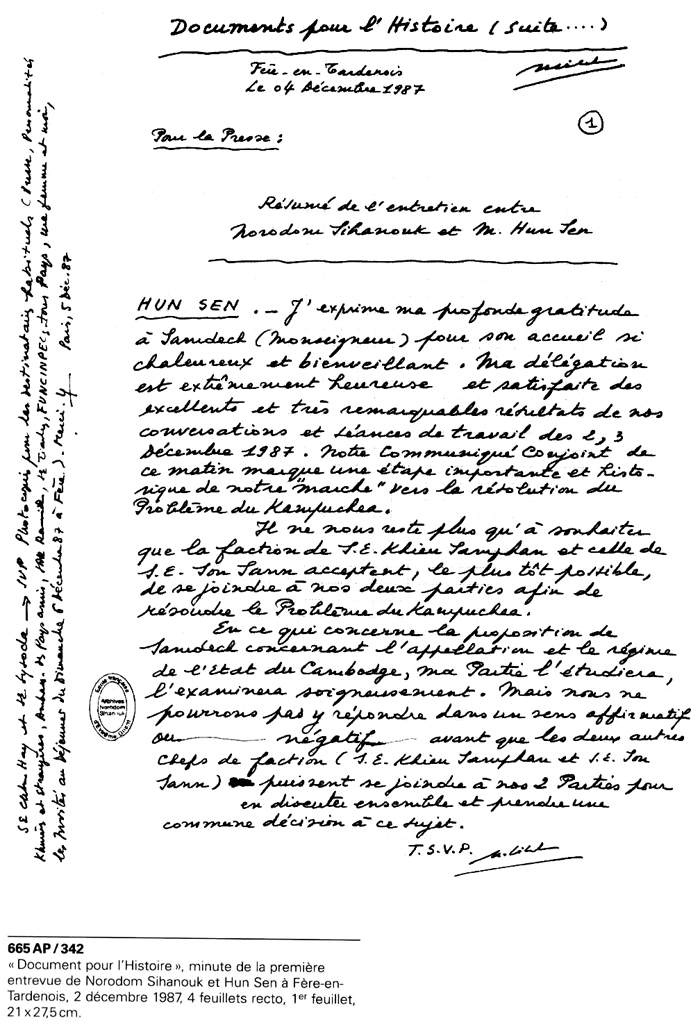 Documents pour l'Histoire (suite....)
Fère-en-Tardenois
Le 04 Décembre 1987
1
Pour la Presse :
Résumé de l'entretien entre
Norodom Sihanouk et M. Hun Sen
HUN SEN .– J'exprime ma profonde gratitude
à Samdech (Monseigneur) pour son accueil si
chaleureux et bienveillant. Ma délégation
est extrêmement heureuse et satisfaite des
excellents et très remarquables résultats de nos
conversations et séances de travail des 2, 3
Décembre 1987. Notre Communiqué Conjoint de
ce matin marque une étape importante et histo-
rique de notre "marche" vers la résolution du
Problème du Kampuchea.
Il ne nous reste plus qu'à souhaiter
que la faction de S.E. Khieu Samphan et celle de
S.E. Son Sann acceptent, le plus tôt possible,
de se joindre à nos deux parties afin de
résoudre le Problème du Kampuchea.
En ce qui concerne la proposition de
Samdech concernant l'appellation et le régime
de l'Etat du Cambodge, ma Partie l'étudiera,
l'examinera soigneusement. Mais nous ne
pourrons pas y répondre dans un sens affirmatif
ou négatif avant que les deux autres
chefs de faction (S.E. Khieu Samphan et S.E. Son
Sann) puissent se joindre à nos 2 Parties pour
en discuter ensemble et prendre une
commune décision à ce sujet.
T.S.V.P.
SE Chhim Hay et → SVP Photocopies pour les destinataires habituels (Presse, Personnalités
Khmères et étrangères, Ambas. de Pays amis, FUNCINPECs tous Pays, ma femme et moi,
les invités au déjeuner du Dimanche 6 Décembre 87 à Fère). Merci. Paris, 5 Déc. 87
École française
Archives
Norodom
Sihanouk
d'Extrême-Orient
665 AP / 342
« Document pour l'Histoire », minute de la première
entrevue de Norodom Sihanouk et Hun Sen à Fère-en-
Tardenois, 2 décembre 1987, 4 feuillets recto, 1er feuillet,
21 x 27,5 cm.